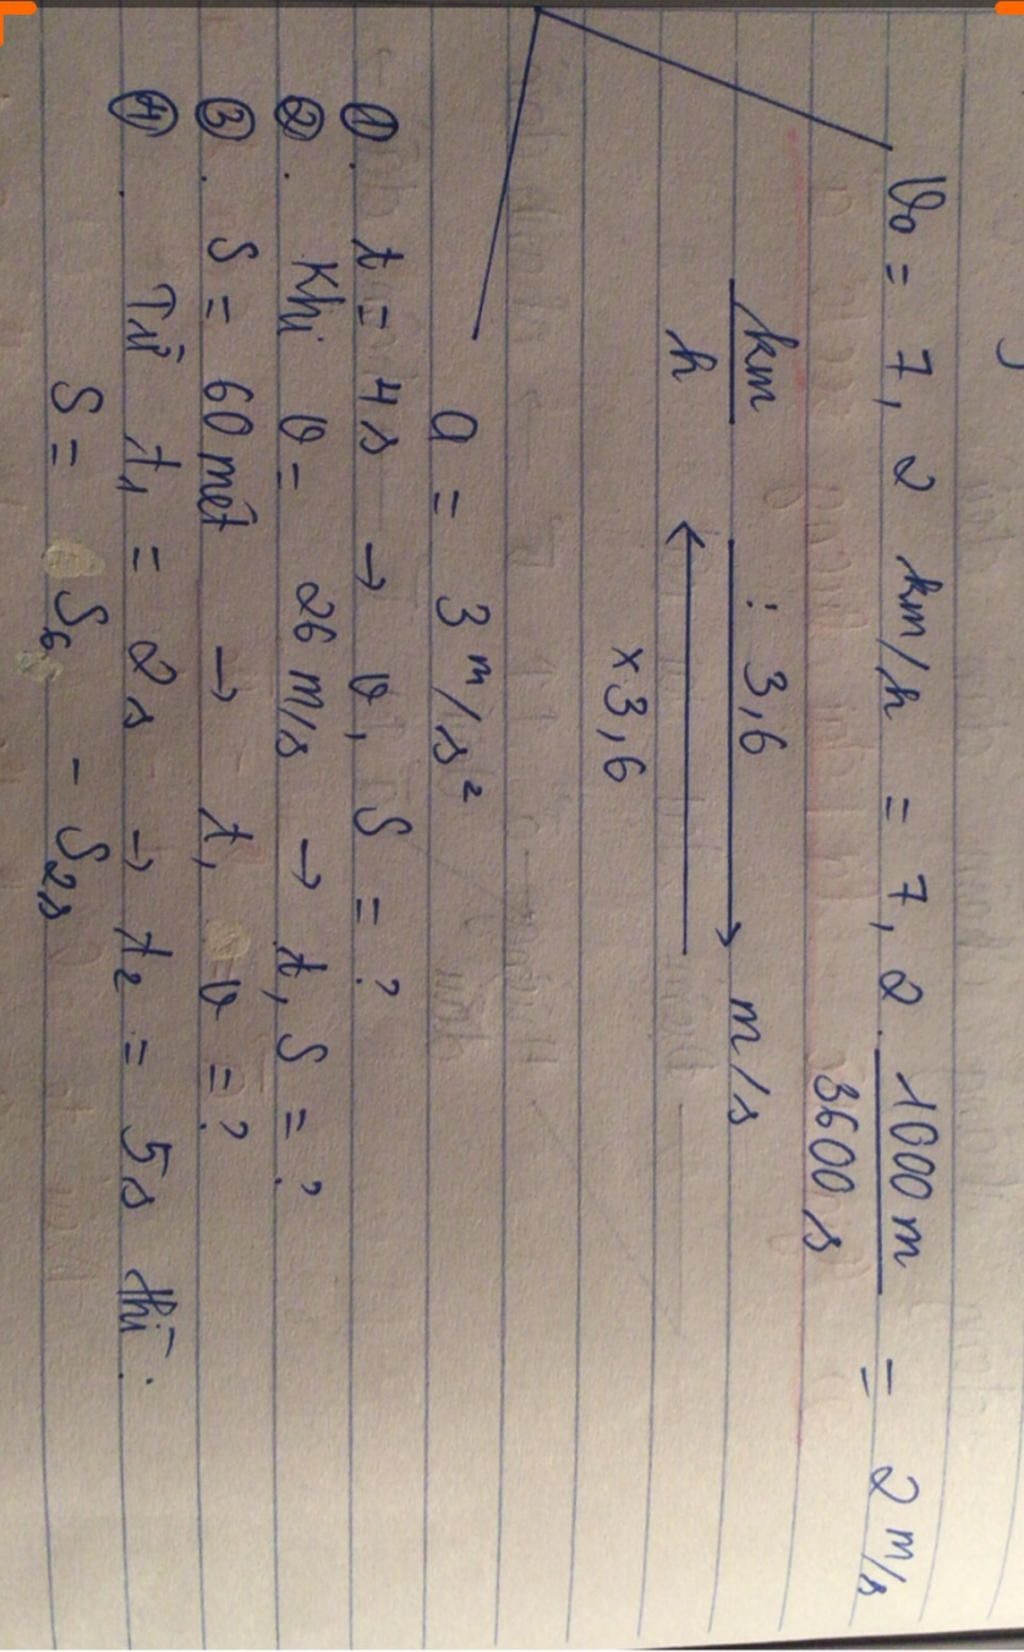 v₀ = 7,2 km/h = 7,2 . 1000m / 3600s = 2 m/s
km/h : 3,6 → m/s
← x3,6
a = 3 m/s²
① . t = 4s → v, S = ?
② . Khi v = 26 m/s → t, S = ?
③ . S = 60 mét → t, v = ?
④ . Từ t₁ = 2s → t₂ = 5s thì :
S = S₆ - S₂s